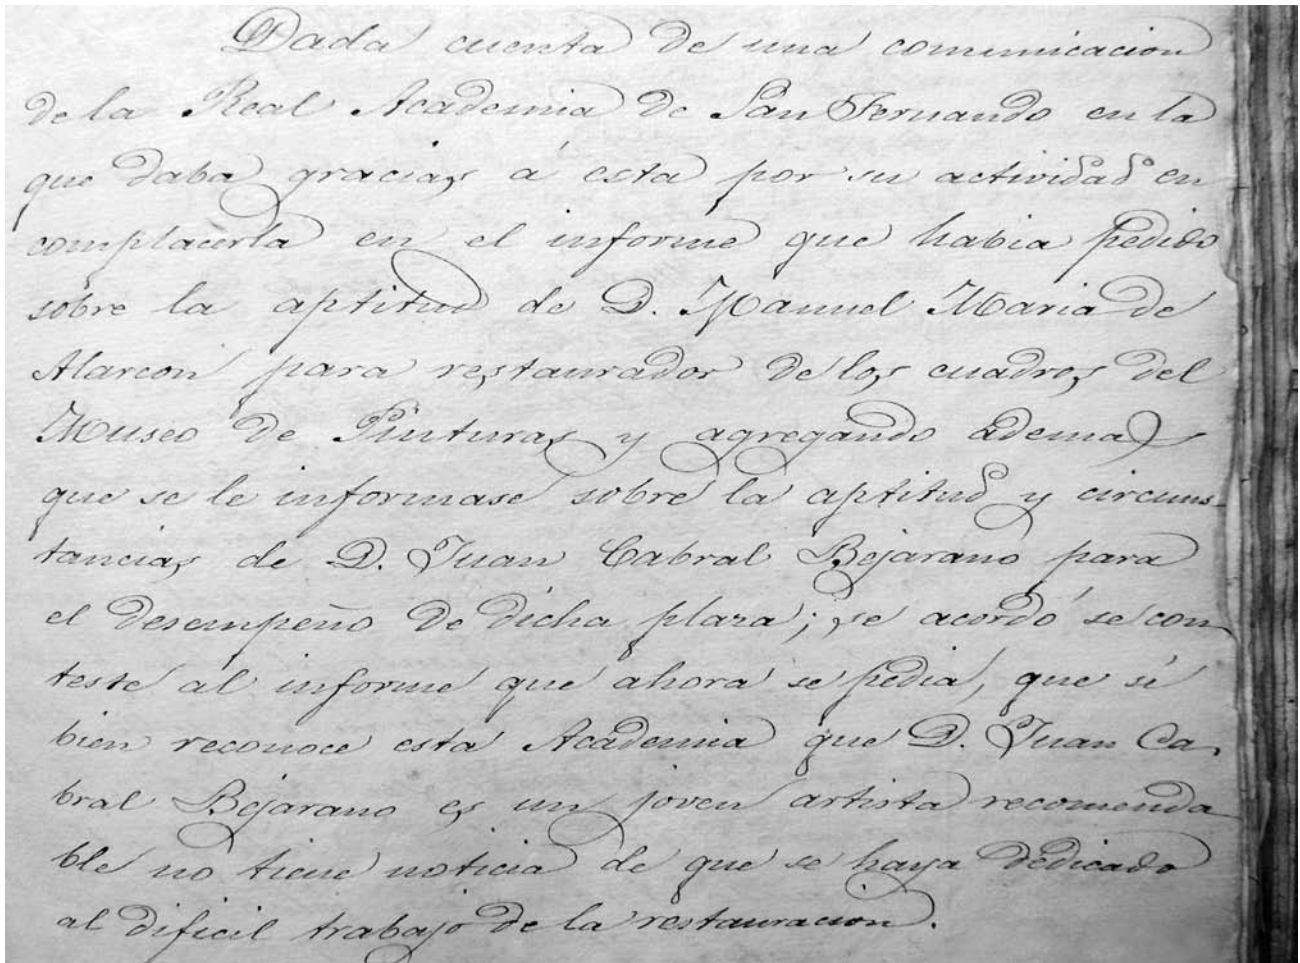 Dada cuenta de una comunicacion
de la Real Academia de San Fernando en la
que daba gracias á esta por su actividad en
complacerla en el informe que habia pedido
sobre la aptitud de D. Manuel Maria de
Alarcon para restaurador de los cuadros del
Museo de Pinturas y agregando ademas
que se le informase sobre la aptitud y circuns-
tancias de D. Juan Cabral Bejarano para
el desempeño de dicha plaza; se acordó se con-
teste al informe que ahora se pedia, que si
bien reconoce esta Academia que D. Juan Ca-
bral Bejarano es un joven artista recomenda
ble no tiene noticia de que se haya dedicado
al dificil trabajo de la restauracion.